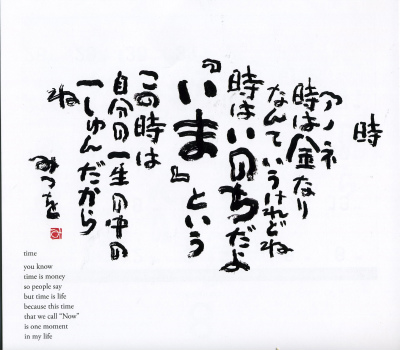 時
アノネ
時は金なり
なんていうけれどね
時はいのちだよ
『いま』という
この時は
自分の一生の中の
一しゅんだから
ね
みつを
time
you know
time is money
so people say
but time is life
because this time
that we call "Now"
is one moment
in my life